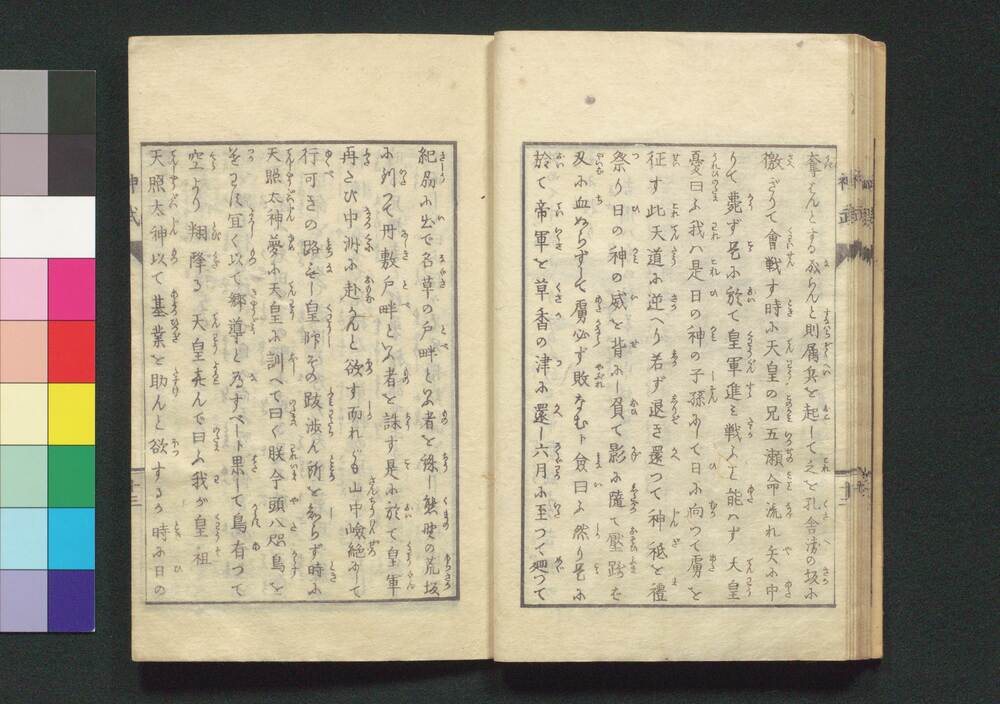 奪はんとするならんと則属兵を起して之を孔舎衛の坂に
徼ぎりて會戦す時に天皇の兄五瀬命流れ矢に中
りて薨ず是に於て皇軍進ミ戦ふこと能ハず天皇
憂曰ふ我ハ是日の神の子孫にして日に向つて虜を
征す此天道に逆へり若ず退き還つて神祇を禮
祭り日の神の威を背に負て影に隨て壓踏せ
刄に血ぬらずして虜必ず敗なむト僉曰ふ然り是に
於て帝軍を草香の津に還し六月に至つて廻つて
紀伊に出で名草の戸畔といふ者を誅し熊野の荒坂
に到つて丹敷戸畔といふ者を誅す是に於て皇軍
再たび中洲に赴かんと欲す而れども山中嶮絶にして
行可きの路なし皇師その跋渉ん所を知らず時に
天照太神夢に天皇に訓へて曰く朕今頭八咫烏を
宜く以て郷導と為すべしト果して烏有つて
空より翔降る天皇喜んで曰ふ我が皇祖
天照太神以て基業を助んと欲するか時に日の
神武